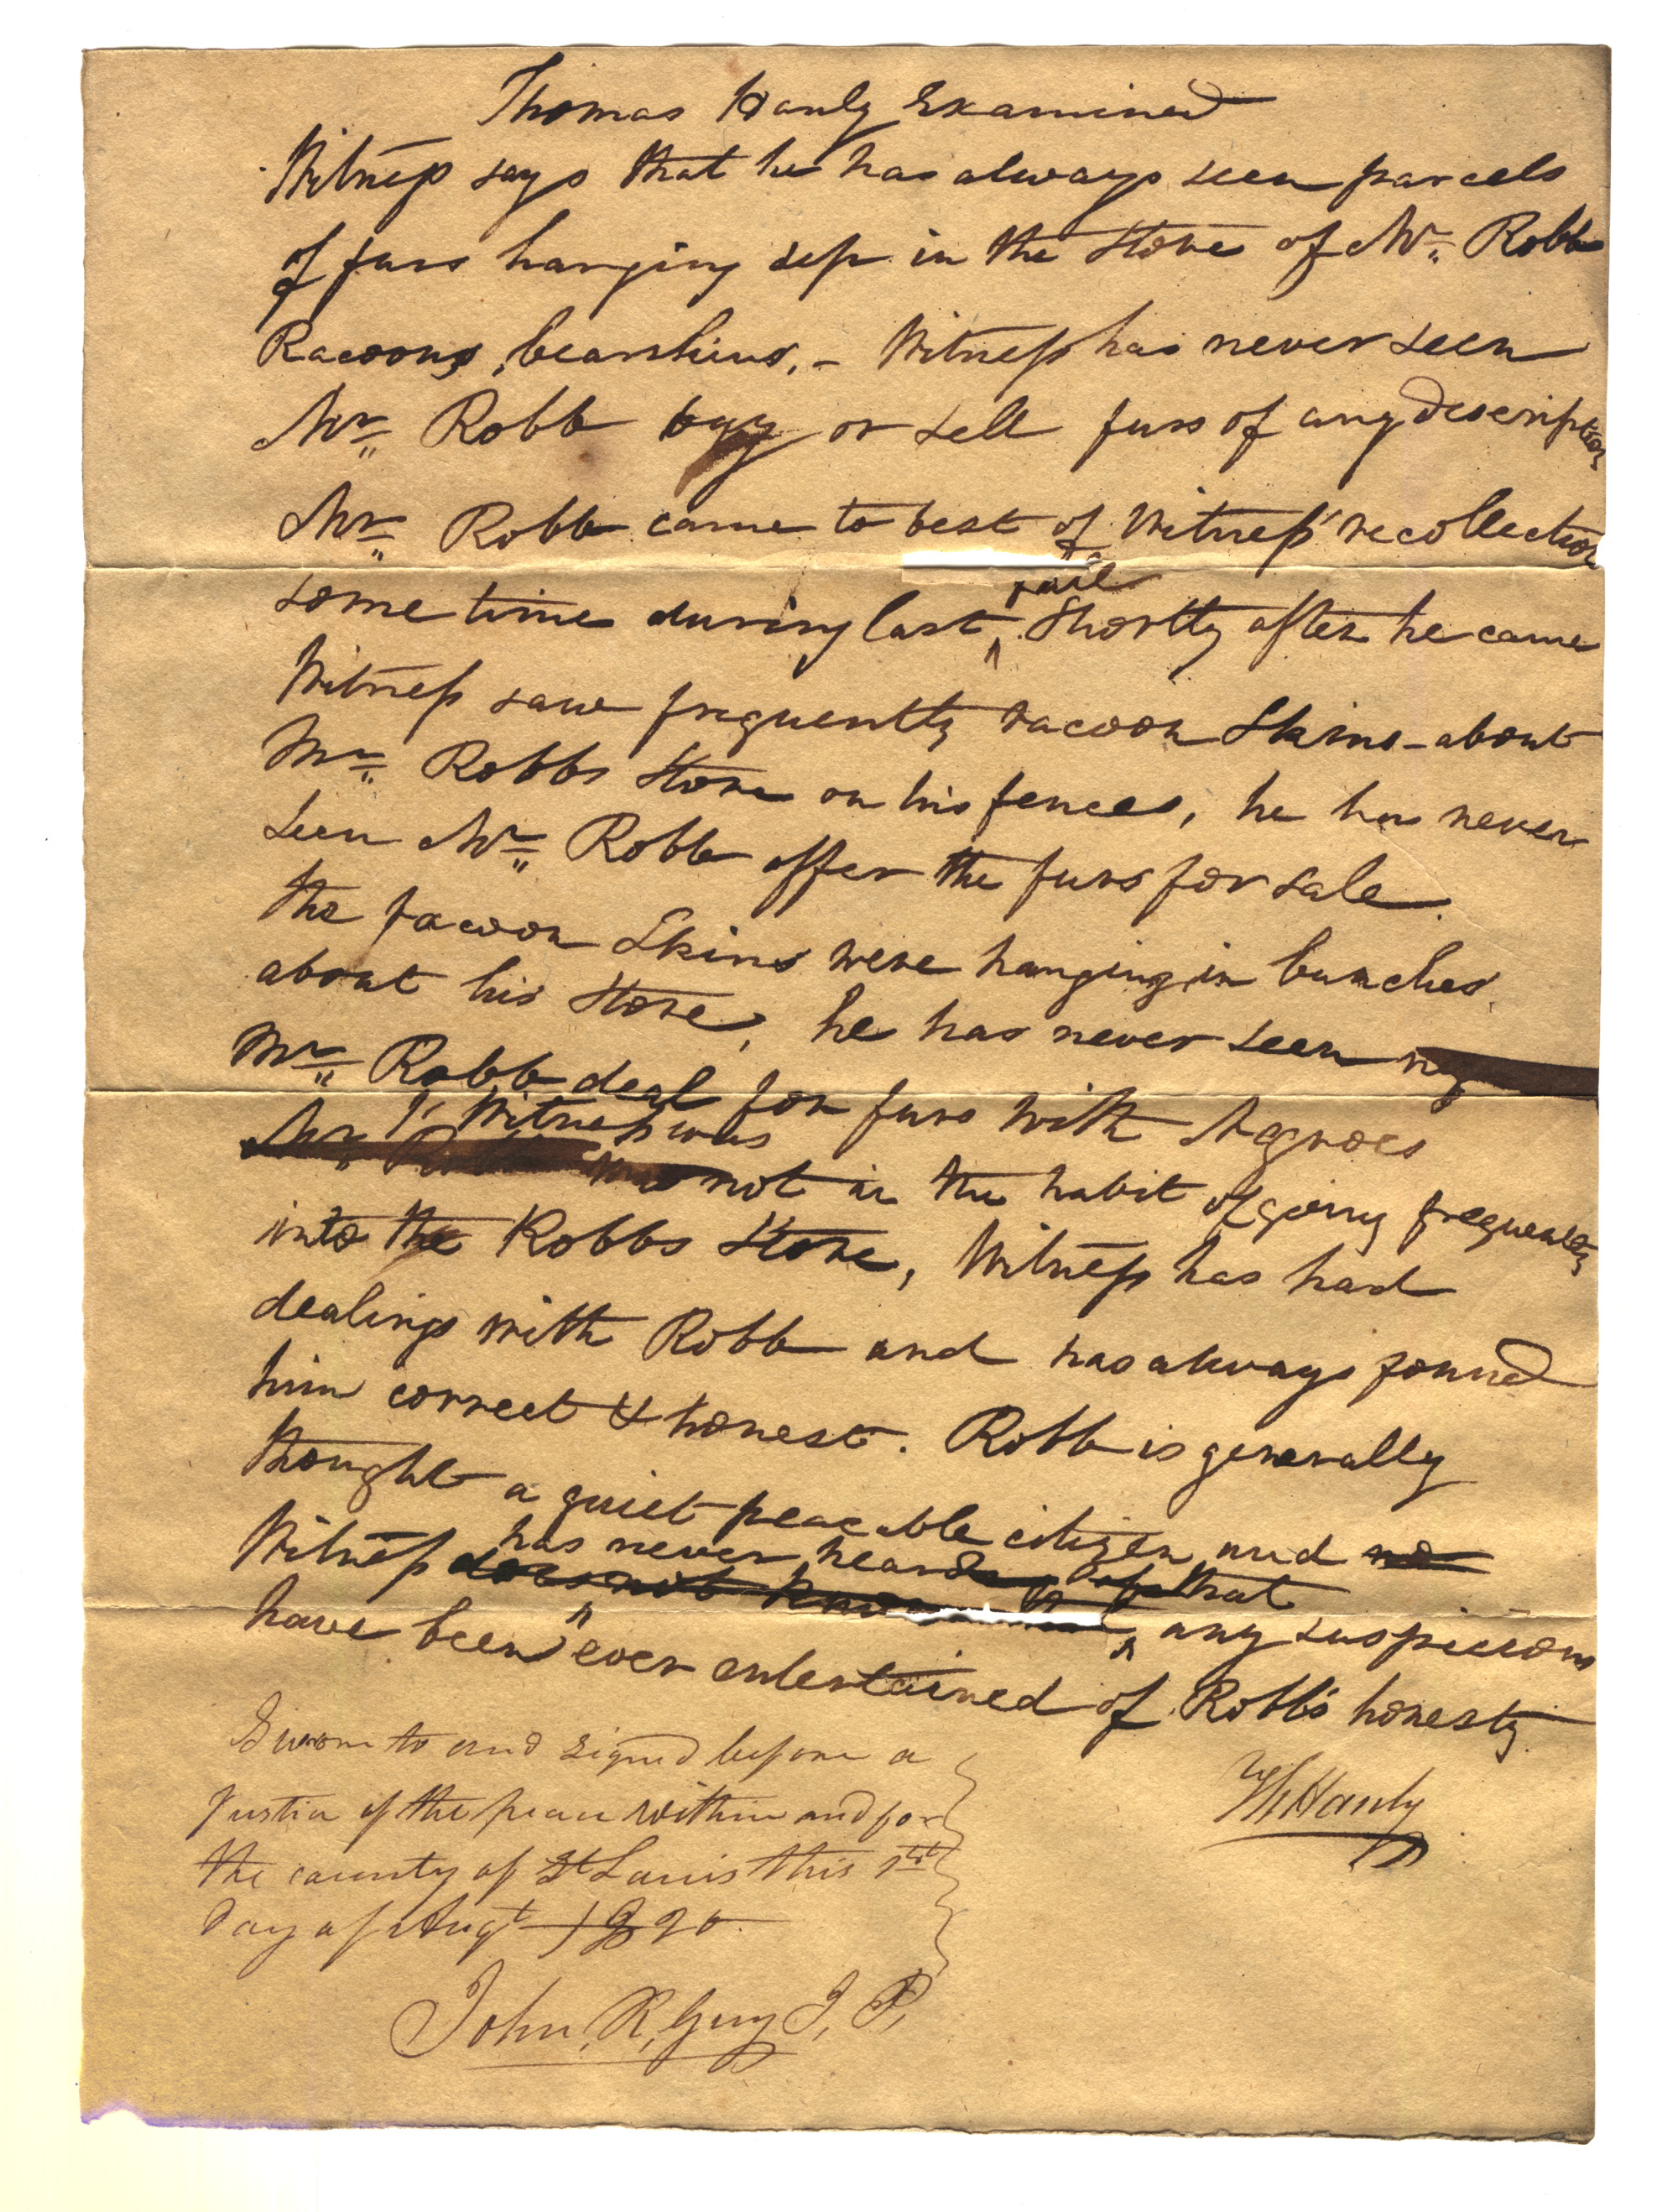 Thomas Hanly Examined
Witness says that he has always seen parcels
of furs hanging up in the Store of Mr. Robb
Racoons, bearskins, - Witness has never seen
Mr. Robb buy or sell furs of any description
Mr. Robb came to best of Witness' recollection
some time during last fall Shortly after he came
Witness saw frequently racoon Skins - about
Mr. Robbs Store on his fences, he has never
seen Mr. Robb offer the furs for sale.
the racoon Skins were hanging in bunches
about his Store, he has never seen
Mr. Robb deal for furs with Negroes
Witness was
not in the habit of going frequently
into the Robbs Store, Witness has had
dealings with Robb and has always found
him correct & honest. Robb is generally
thought a quiet peaceable citizen and no
has never heard that
Witness does not know any suspicions
have been ever entertained of Robb's honesty
Th Hanly
Sworn to and signed before a
Justice of the peace within and for
the county of St Louis this 1st
Day of Augt 1820.
John. R, Guy J, P,